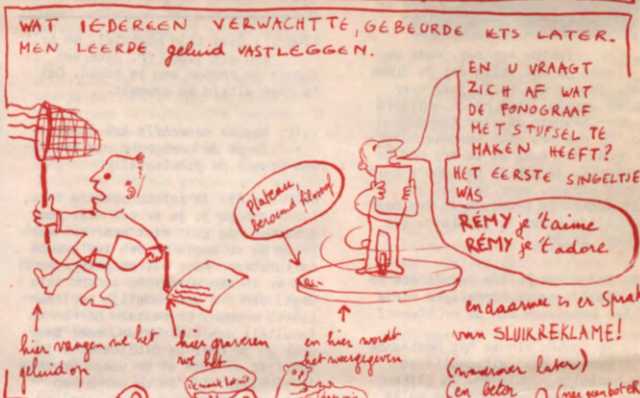 WAT IEDEREEN VERWACHTTE, GEBEURDE IETS LATER.
MEN LEERDE geluid VASTLEGGEN.
EN U VRAAGT
ZICH AF WAT
DE FONOGRAAF
MET STIJFSEL TE
MAKEN HEEFT?
HET EERSTE SINGELTJE
WAS
RÉMY je 't aime
RÉMY je 't adore
plateau,
beroemd filosoof
hier vangen we het
geluid op
hier graveren
we het
en hier wordt
het weergegeven
en daarmee is er
van SLUIKREKLAME!
(waarover later)
(en beter